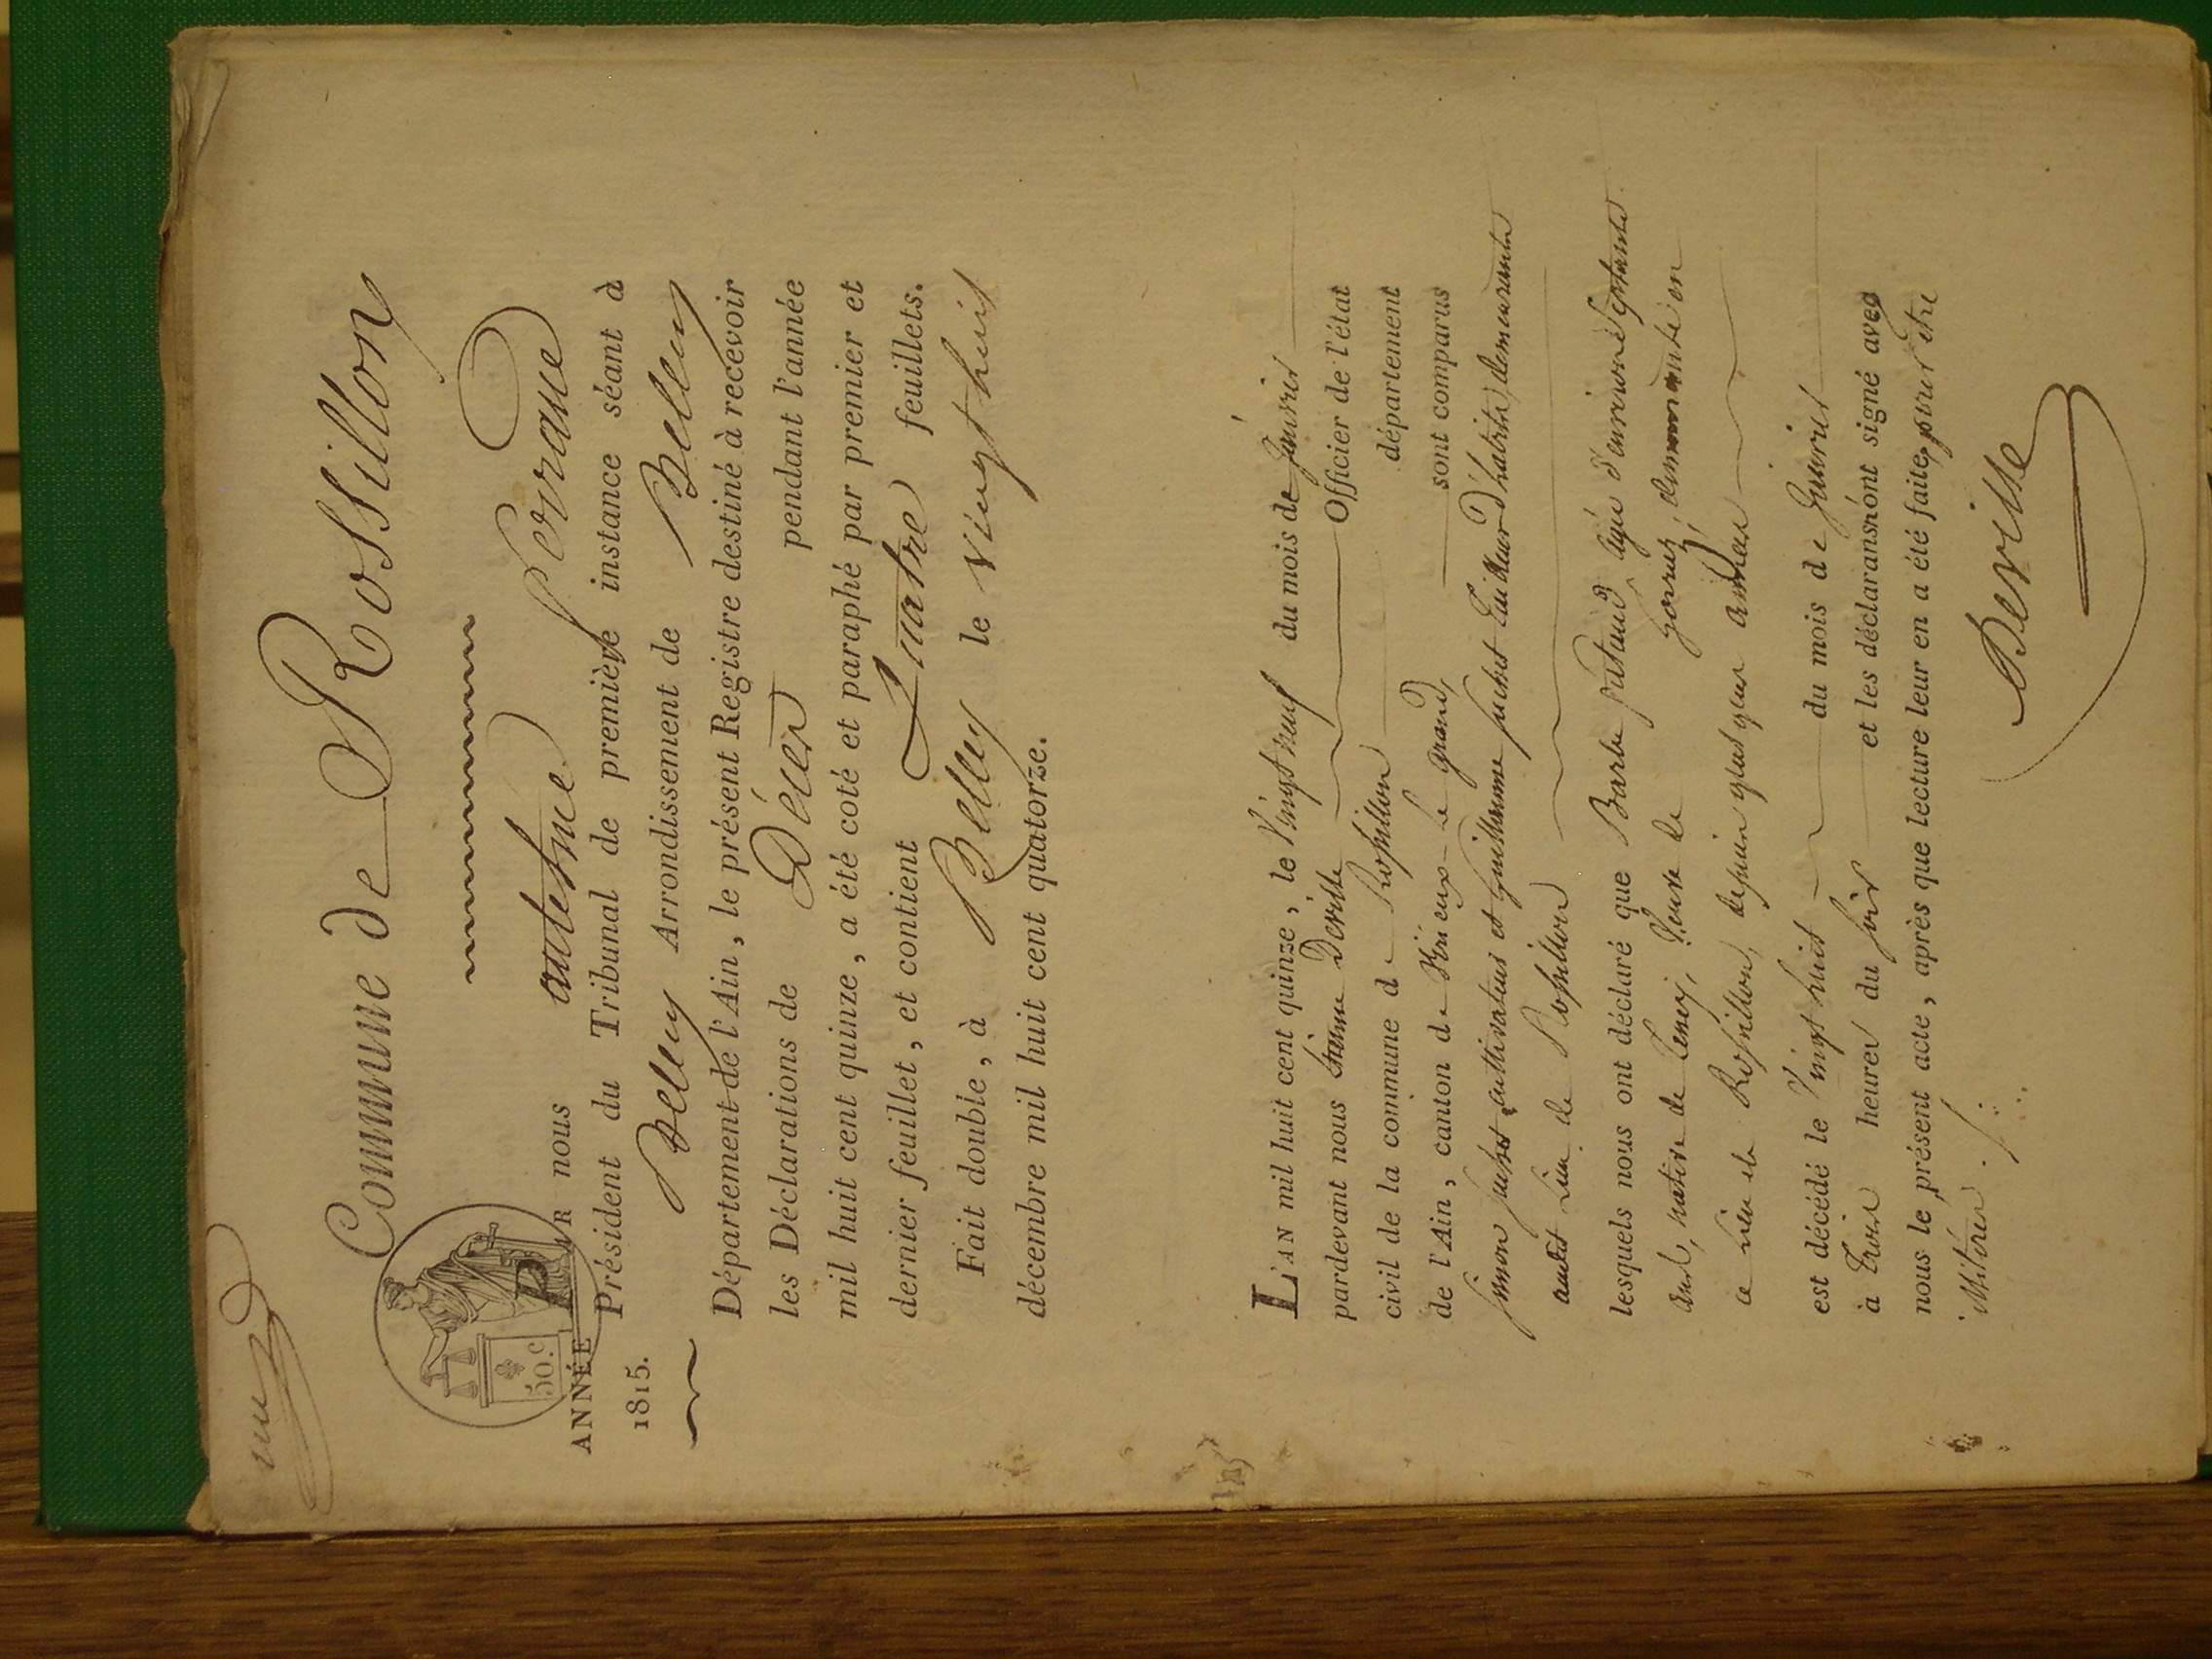 un
Commune de Rossillon
50.c
ANNÉE
1815.
PAR nous antelme ferrand
Président du Tribunal de première instance séant à
Belley Arrondissement de Belley
Département de l'Ain, le présent Registre destiné à recevoir
les Déclarations de Décès pendant l'année
mil huit cent quinze, a été coté et paraphé par premier et
dernier feuillet, et contient quatre feuillets.
Fait double, à Belley le vingt huit
décembre mil huit cent quatorze.
L'AN mil huit cent quinze, le Vingt neuf du mois de Janvier
pardevant nous Deville Officier de l'état
civil de la commune de Rossillon département
de l'Ain, canton de Virieux le grand, sont comparus
cultivateurs et guillaume d'habits demeurants
audit Lieu de Rossillon
lesquels nous ont déclaré que Barbe agée d'environ septante
ans, native de Veuve de demeurante en
ce Lieu de Rossillon, depuis quelques années
est décédé le Vingt huit du mois de Janvier
à Trois heures du soir et les déclarans ont signé avec
nous le présent acte, après que lecture leur en a été faite, pour être
Deville